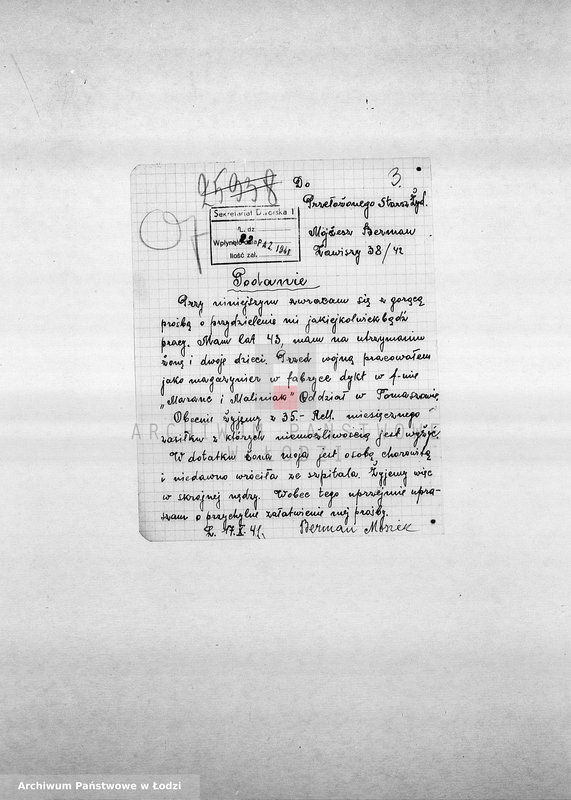 25938
Do
3.
Przełożonego Starsz. Żyd.
Op
Sekretariat Dworska 1
L. dz
Wpłynęło dnia 1941
Ilość zał.
Mojżesz Berman
Zawiszy 38/42
Podanie
Przy niniejszym zwracam się z gorącą
prośbą o przydzielenie mi jakiejkolwiekbądź
pracy. Mam lat 43, mam na utrzymaniu
żonę i dwoje dzieci. Przed wojną pracowałem
jako magazynier w fabryce dykt w f-mie
„Maranc i Maliniak" Oddział w Tomaszowie.
Obecnie żyjemy z 35.- Rm. miesięcznego
zasiłku z których niemożliwością jest wyżyć.
W dodatku żona moja jest osobą chorowitą
i niedawno wróciła ze szpitala. Żyjemy więc
w skrojnej nędzy. Wobec tego uprzejmie upra-
szam o przychylne załatwienie mej prośby.
Ł. 17.X.41. Berman Moszek
ARCHIWUM PAŃSTWOWE
W ŁODZI
Archiwum Państwowe w Łodzi